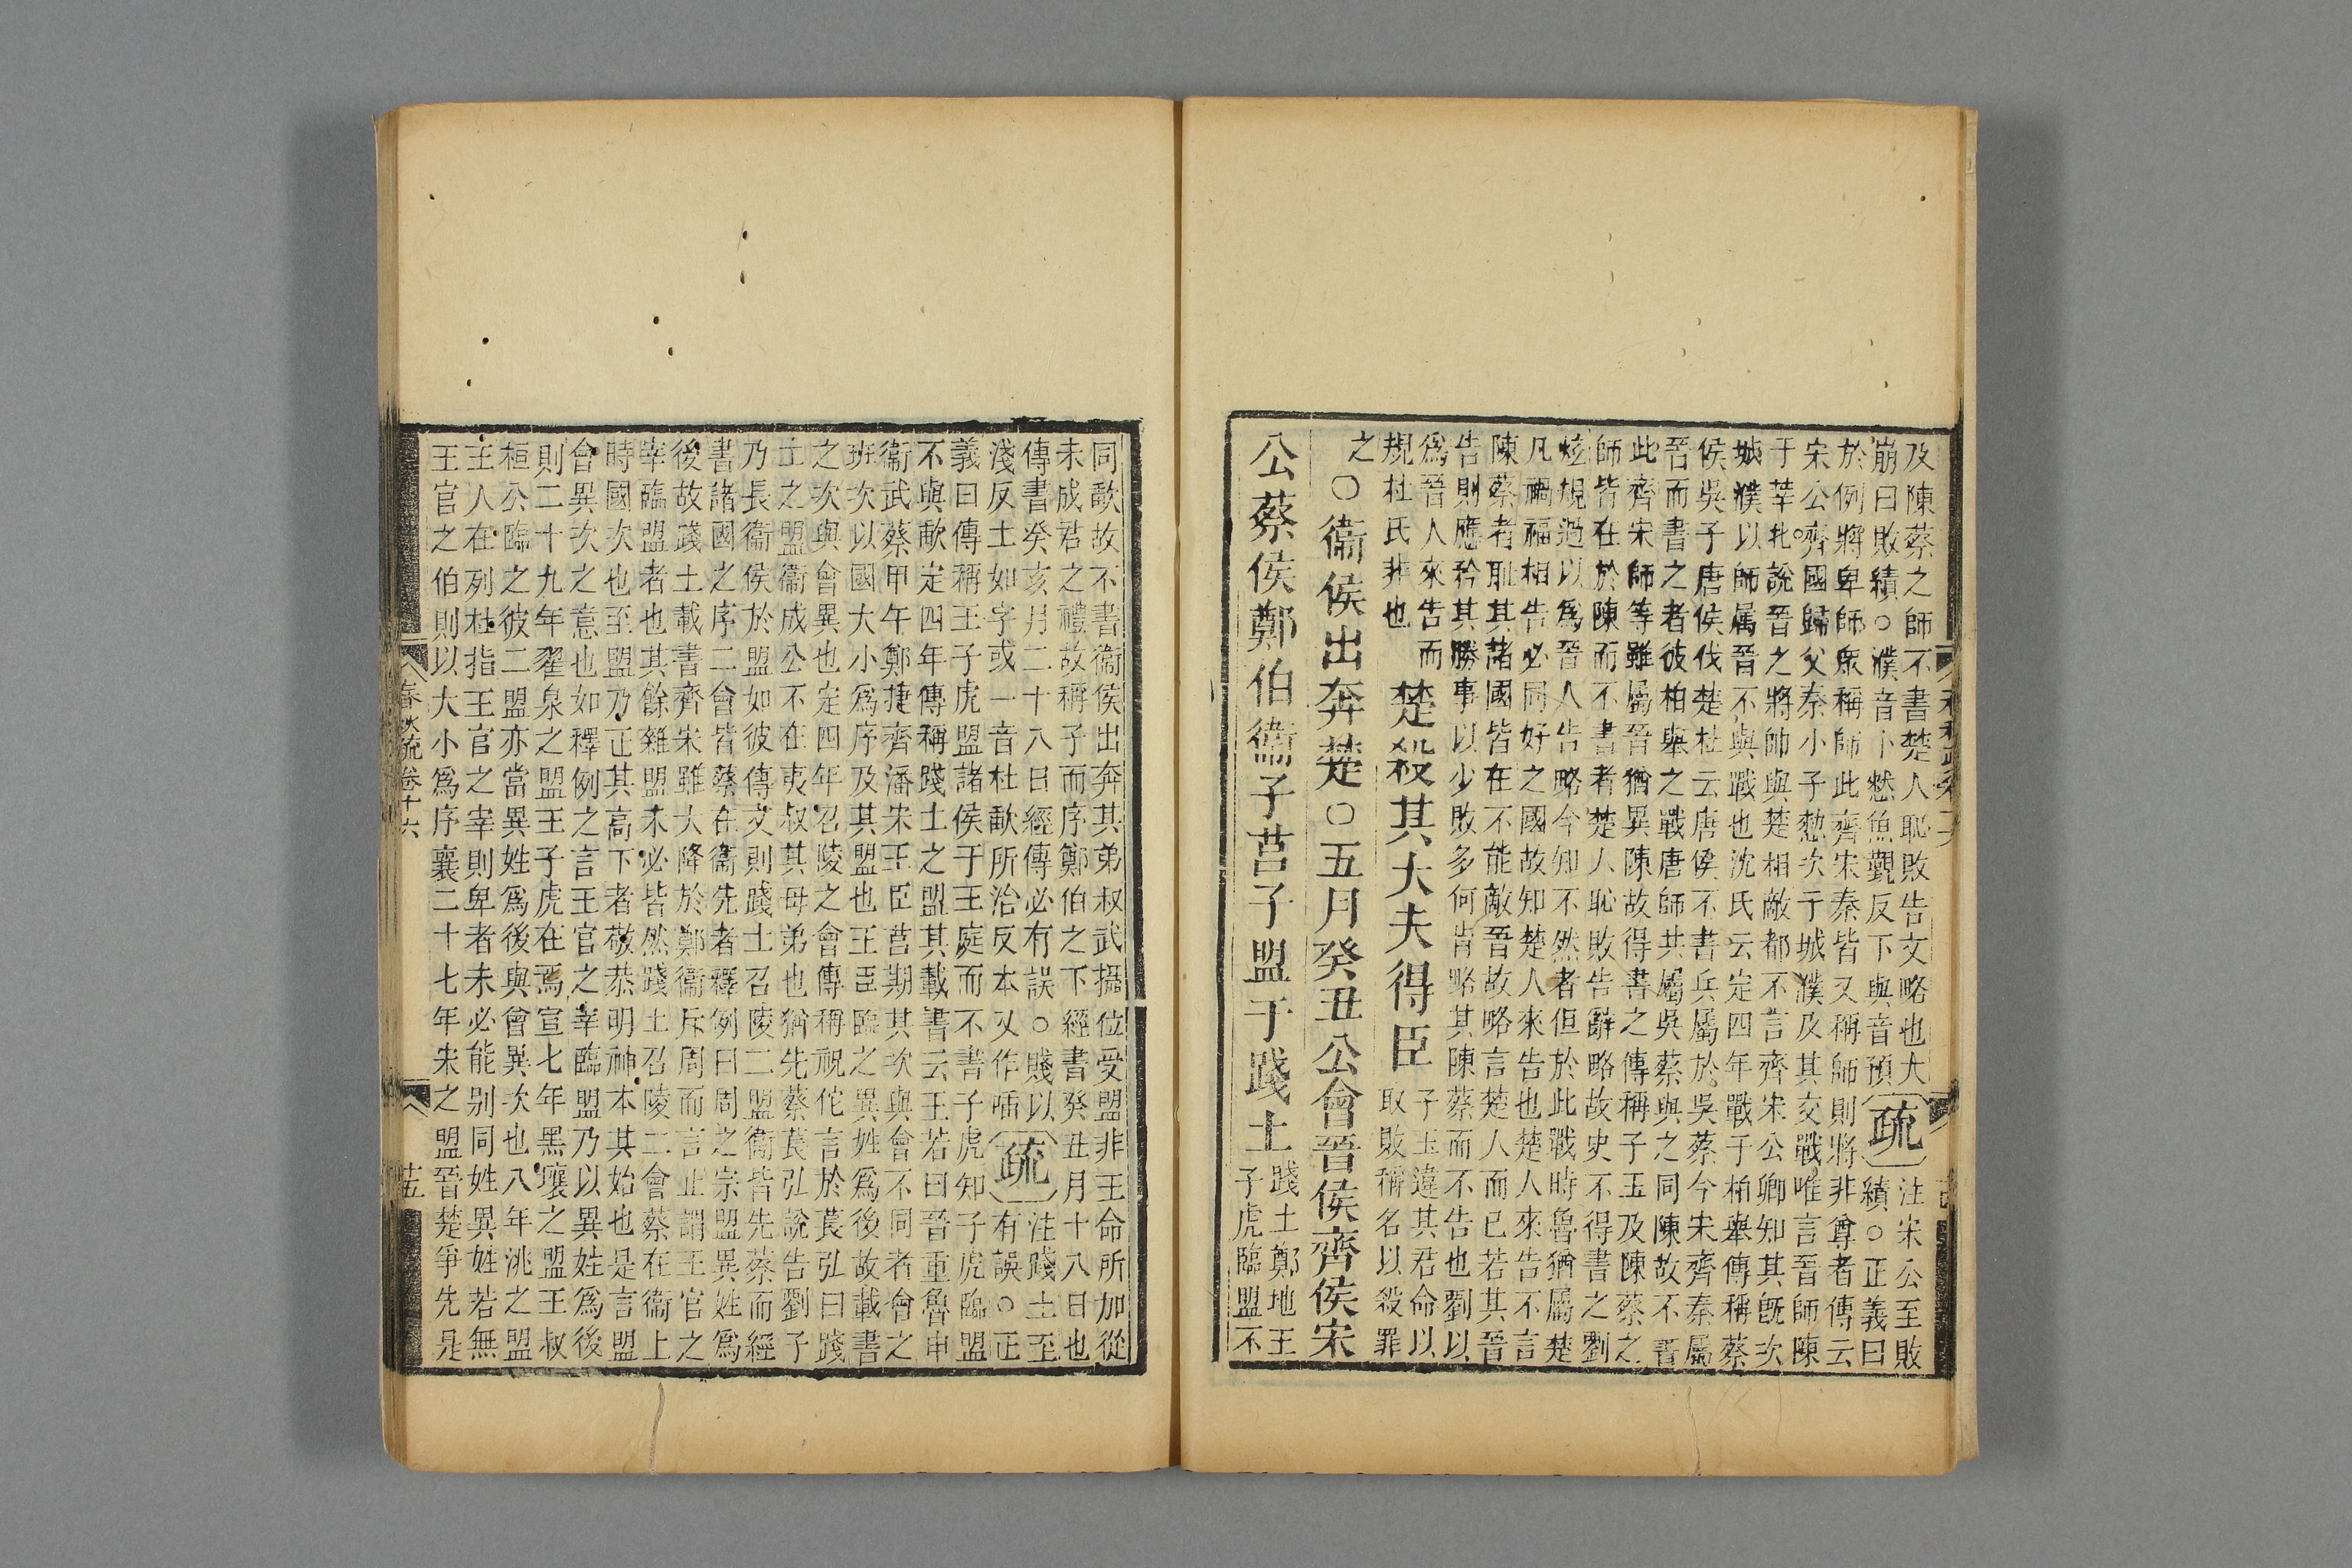 及陳蔡之師不書楚人恥敗告文略也大
崩曰敗績○濮音卜憖魚覲反下與音預
疏
注宋公至敗
績○正義曰
於例將卑師眾稱師此齊宋秦皆又稱師則將非尊者傳云
宋公齊國歸父秦小子憖次于城濮及其交戰唯言晉師陳
于莘北說晉之將帥與楚相敵都不言齊宋公卿知其既次
城濮以師属晉不與戰也沈氏云定四年戰于柏舉傳稱蔡
侯吳子唐侯伐楚杜云唐侯不書兵屬於吳蔡今宋齊秦屬
晉而書之者彼柏舉之戰唐師共屬吳蔡與之同陳故不書
此齊宋師等雖屬晉猶異陳故得書之傳稱子玉及陳蔡之
師皆在於陳而不書者楚人恥敗告辭略故史不得書之劉
炫規過以為晉人告略今知不然者但於此戰時魯猶屬楚
凡禍福相告必同好之國故知楚人來告也楚人來告不言
陳蔡者恥其諸國皆在不能敵晉故略言楚人而已若其晉
告則應矜其勝事以少敗多何肯略其陳蔡而不告也劉以
為晉人來告而
規杜氏非也
楚殺其大夫得臣
子玉違其君命以
取敗稱名以殺罪
之○衞侯出奔楚○五月癸丑公會晉侯齊侯宋
公蔡侯鄭伯衞子莒子盟于踐土
踐土鄭地王
子虎臨盟不
同歃故不書衞侯出奔其弟叔武攝位受盟非王命所加從
未成君之禮故稱子而序鄭伯之下經書癸丑月十八日也
傳書癸亥月二十八日經傳必有誤○賤以
淺反土如字或一音杜歃所洽反本又作唶
疏
注踐土至
有誤○正
義曰傳稱王子虎盟諸侯于王庭而不書子虎知子虎臨盟
不與歃定四年傳稱踐土之盟其載書云王若曰晉重魯申
衞武蔡甲午鄭捷齊潘宋王臣莒期其次與會不同者會之
班次以國大小為序及其盟也王臣臨之異姓為後故載書
之次與會異也定四年召陵之會傳稱祝佗言於萇弘曰踐
土之盟衞成公不在夷叔其母弟也猶先蔡萇弘說告劉子
乃長衞侯於盟如彼傳文則踐土召陵二盟衞皆先蔡而經
書諸國之序二會皆蔡在衞先者釋例曰周之宗盟異姓為
後故踐土載書齊宋雖大降於鄭衞斥周而言止謂王官之
宰臨盟者也其餘雜盟未必皆然踐土召陵二會蔡在衞上
時國次也至盟乃正其高下者敬恭明神本其始也是言盟
會異次之意也如釋例之言王官之宰臨盟乃以異姓為後
則二十九年翟泉之盟王子虎在焉宣七年黑壤之盟王叔
桓公臨之彼二盟亦當異姓為後與會異次也八年洮之盟
王人在列杜指王官之宰則卑者未必能別同姓異姓若無
王官之伯則以大小為序襄二十七年宋之盟晉楚爭先是
春秋疏卷十六
十五